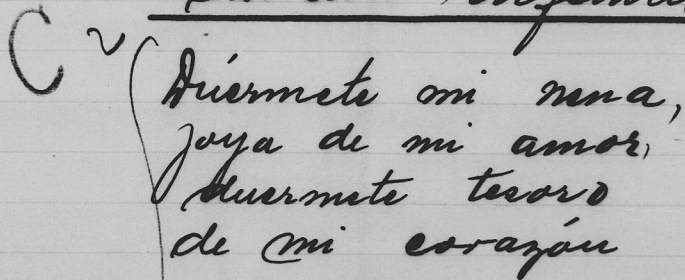 C
Duérmete mi nena,
joya de mi amor,
duermete tesoro
de mi corazón